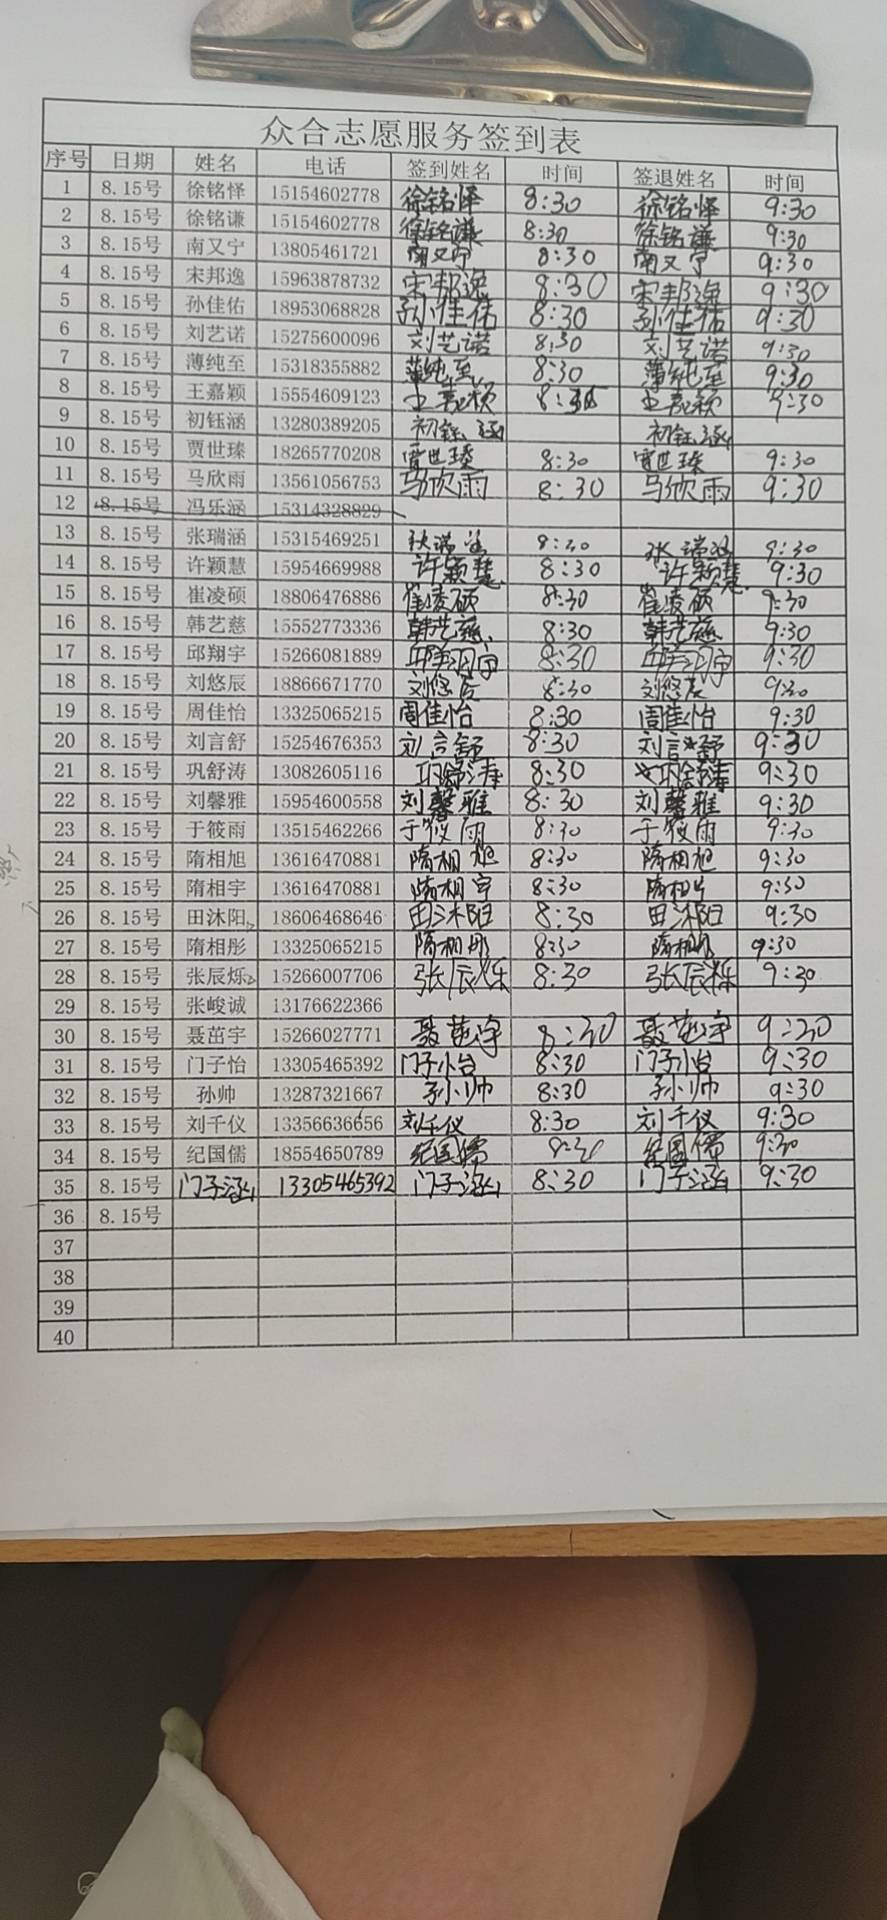 众合志愿服务签到表
序号 日期 姓名 电话 签到姓名 时间 签退姓名 时间
1 8.15号 徐铭怿 15154602778 徐铭怿 8:30 徐铭怿 9:30
2 8.15号 徐铭谦 15154602778 徐铭谦 8:30 徐铭谦 9:30
3 8.15号 南又宁 13805461721 南又宁 8:30 南又宁 9:30
4 8.15号 宋邦逸 15963878732 宋邦逸 8:30 宋邦逸 9:30
5 8.15号 孙佳佑 18953068828 孙佳佑 8:30 孙佳佑 9:30
6 8.15号 刘艺诺 15275600096 刘艺诺 8:30 刘艺诺 9:30
7 8.15号 薄纯至 15318355882 薄纯至 8:30 薄纯至 9:30
8 8.15号 王嘉颖 15554609123 王嘉颖 王嘉颖 9:30
9 8.15号 初钰涵 13280389205 初钰涵 初钰涵
10 8.15号 贾世瑧 18265770208 贾世瑧 8:30 贾世瑧 9:30
11 8.15号 马欣雨 13561056753 马欣雨 8:30 马欣雨 9:30
12 8.15号 冯乐涵 15314328829
13 8.15号 张瑞涵 15315469251 8:30 9:30
14 8.15号 许颖慧 15954669988 许颖慧 8:30 许颖慧 9:30
15 8.15号 崔凌硕 18806476886 崔凌硕 8:30 崔凌硕 9:30
16 8.15号 韩艺慈 15552773336 韩艺慈 8:30 韩艺慈 9:30
17 8.15号 邱翔宇 15266081889 邱翔宇 8:30 邱翔宇 9:30
18 8.15号 刘悠辰 18866671770 刘悠辰 8:30 刘悠辰 9:30
19 8.15号 周佳怡 13325065215 周佳怡 8:30 周佳怡 9:30
20 8.15号 刘言舒 15254676353 刘言舒 8:30 刘言舒 9:30
21 8.15号 巩舒涛 13082605116 巩舒涛 8:30 巩舒涛 9:30
22 8.15号 刘馨雅 15954600558 刘馨雅 8:30 刘馨雅 9:30
23 8.15号 于筱雨 13515462266 于筱雨 8:30 于筱雨 9:30
24 8.15号 隋相旭 13616470881 隋相旭 8:30 隋相旭 9:30
25 8.15号 隋相宇 13616470881 隋相宇 8:30 隋相宇 9:30
26 8.15号 田沐阳 18606468646 田沐阳 8:30 田沐阳 9:30
27 8.15号 隋相彤 13325065215 隋相彤 8:30 隋相彤 9:30
28 8.15号 张辰烁 15266007706 张辰烁 8:30 张辰烁 9:30
29 8.15号 张峻诚 13176622366
30 8.15号 聂茁宇 15266027771 聂茁宇 8:30 聂茁宇 9:30
31 8.15号 门子怡 13305465392 门子怡 8:30 门子怡 9:30
32 8.15号 孙帅 13287321667 孙帅 8:30 孙帅 9:30
33 8.15号 刘千仪 13356636656 刘千仪 8:30 刘千仪 9:30
34 8.15号 纪国儒 18554650789 纪国儒 8:30 纪国儒 9:30
35 8.15号 门子涵 13305465392 门子涵 8:30 门子涵 9:30
36 8.15号
37
38
39
40